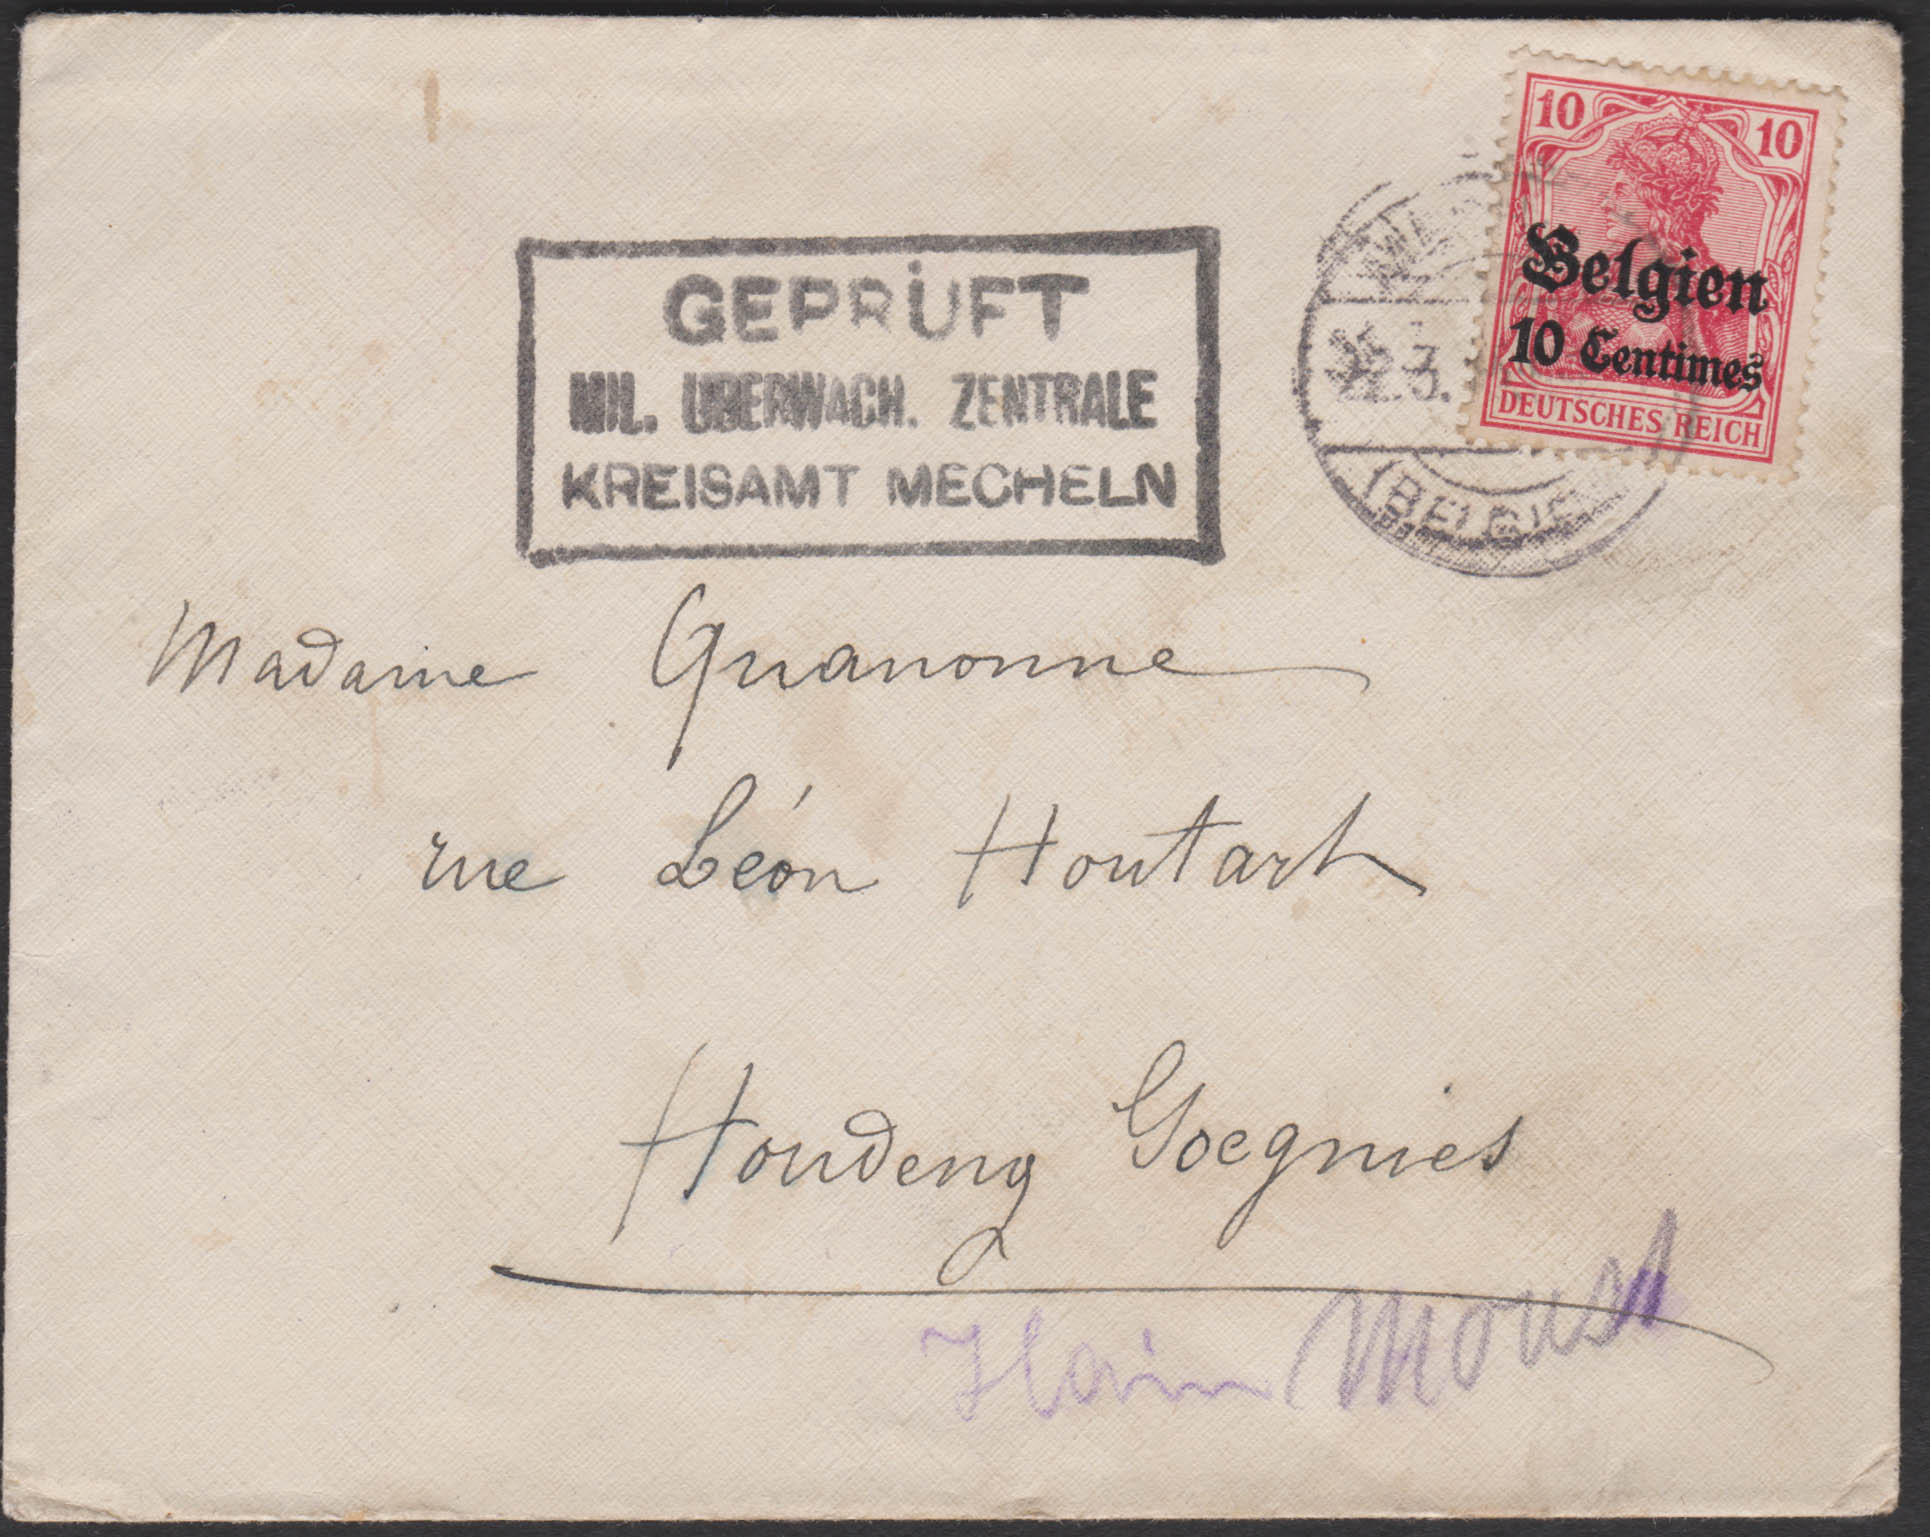 10 10
Belgien
10 Centimes
DEUTSCHES REICH
(BELGIE
GEPRÜFT
MIL. UBERWACH. ZENTRALE
KREISAMT MECHELN
Madame Quanonne
rue Léon Houtart
Houdeng Goegnies